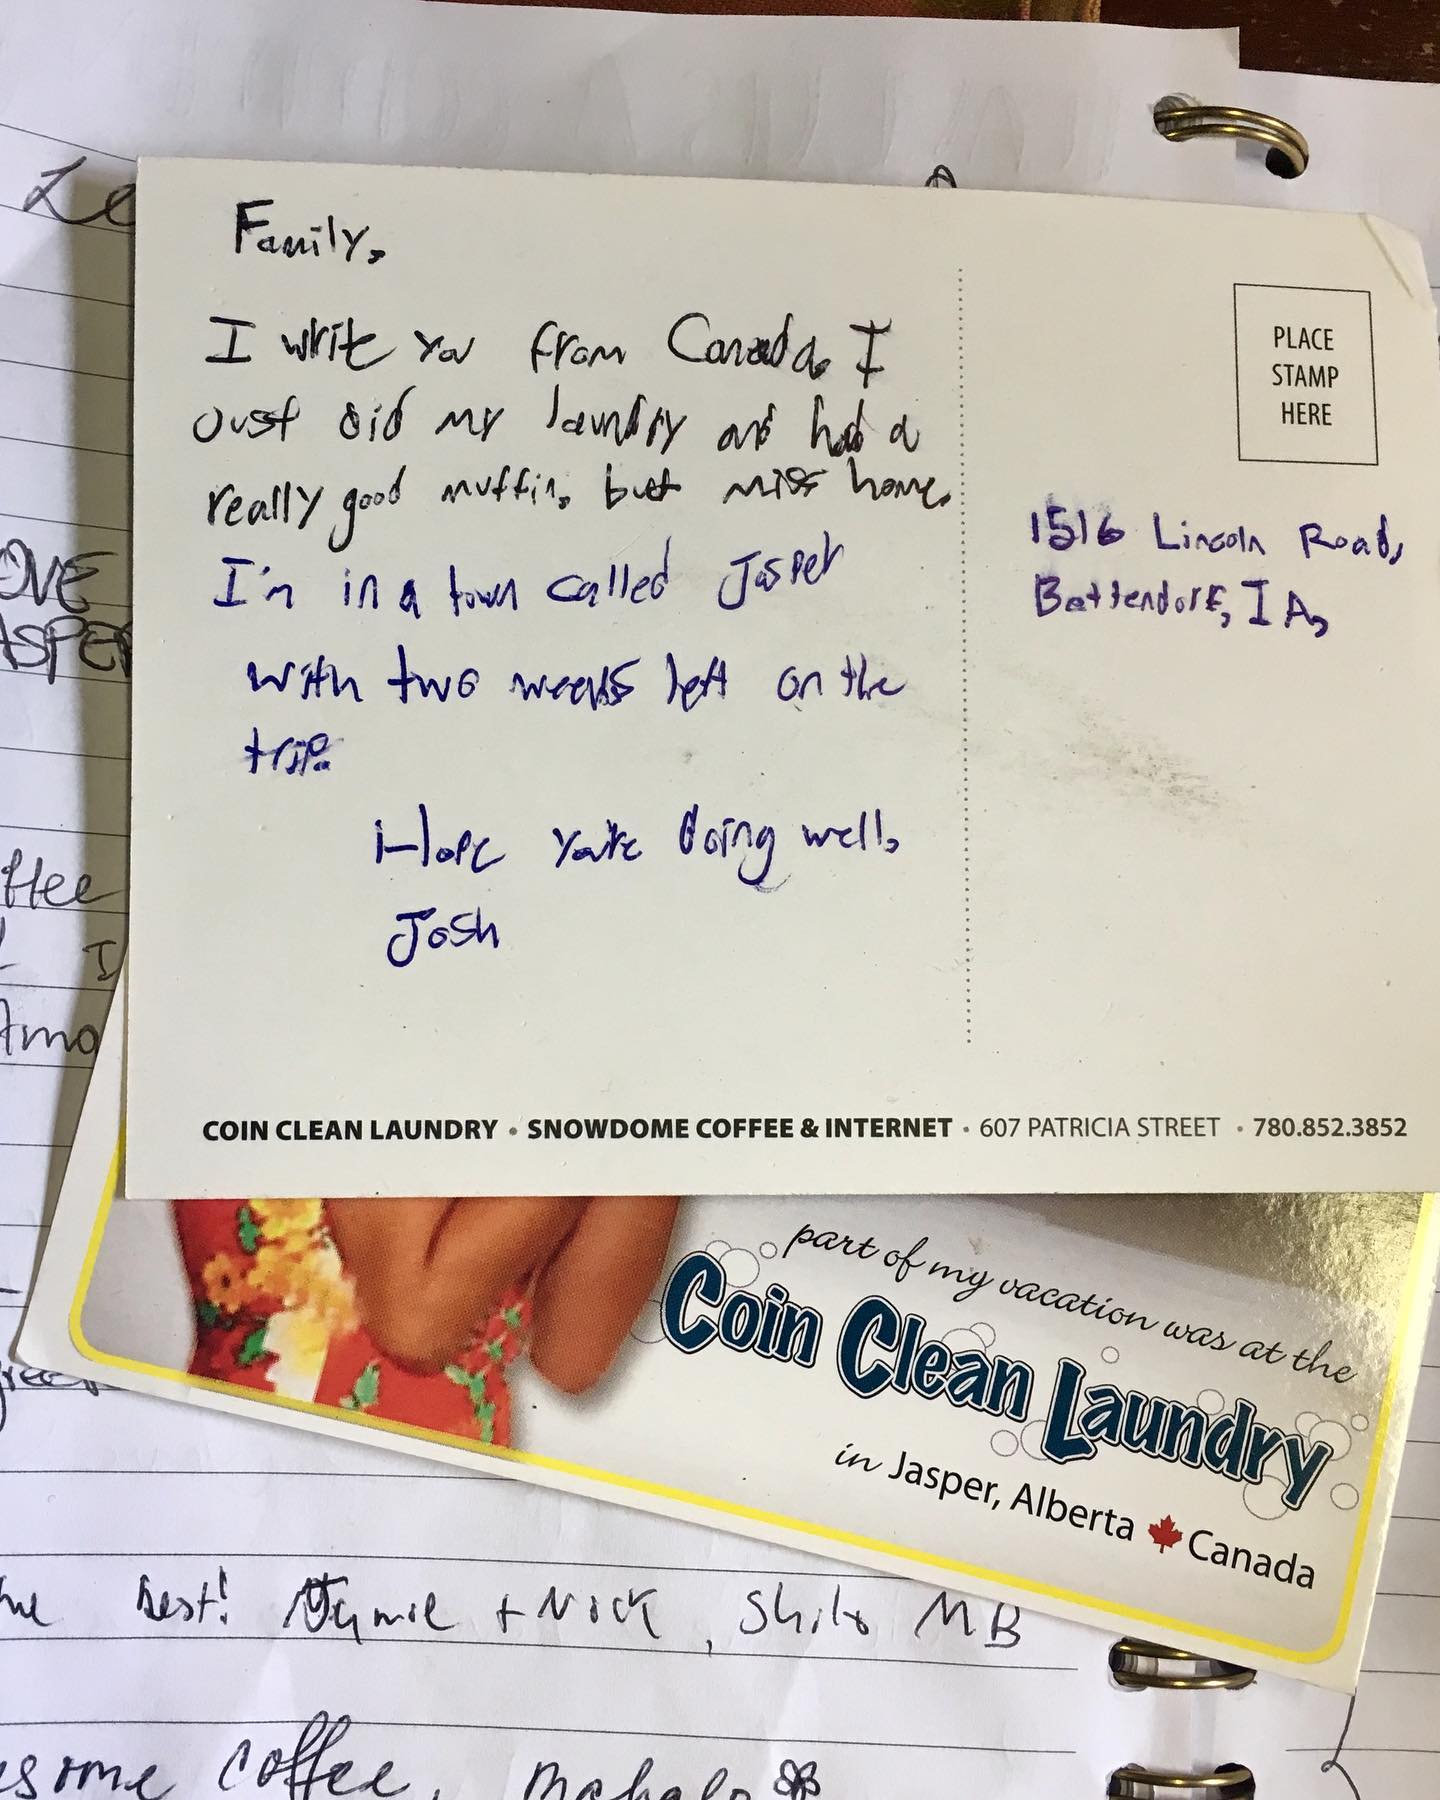 Le
Family,
I write you from Canada. I
Just did my laundry and had a
really good muffin, but miss home.
I'm in a town called Jasper
with two weeks left on the
trip.
Hope you're doing well,
Josh
PLACE
STAMP
HERE
1516 Lincoln Road,
Bettendorf, IA,
COIN CLEAN LAUNDRY • SNOWDOME COFFEE & INTERNET • 607 PATRICIA STREET • 780.852.3852
part of my vacation was at the
Coin Clean Laundry
in Jasper, Alberta Canada
ONE
ASPER
ffee
I
Amo
Best! Jamie + Nick, Shilo MB
esome coffee. Mahalo